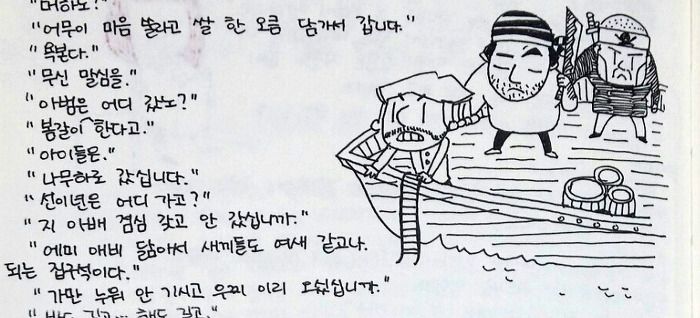 "머하노?"
"어무이 마음 쓸라고 쌀 한 오큼 담가서 갑니다."
"욕본다."
"무신 말심을."
"아범은 어디 갔노?"
"봄갈이 한다고."
"아이들은."
"나무하로 갔십니다."
"선이년은 어디 가고?"
"지 아배 겸심 갖고 안 갔십니까."
"에미 애비 닮아서 새끼들도 여새 같고나.
되는 집구석이다."
"가만 누워 안 기시고 우찌 이리 오싰십니까."